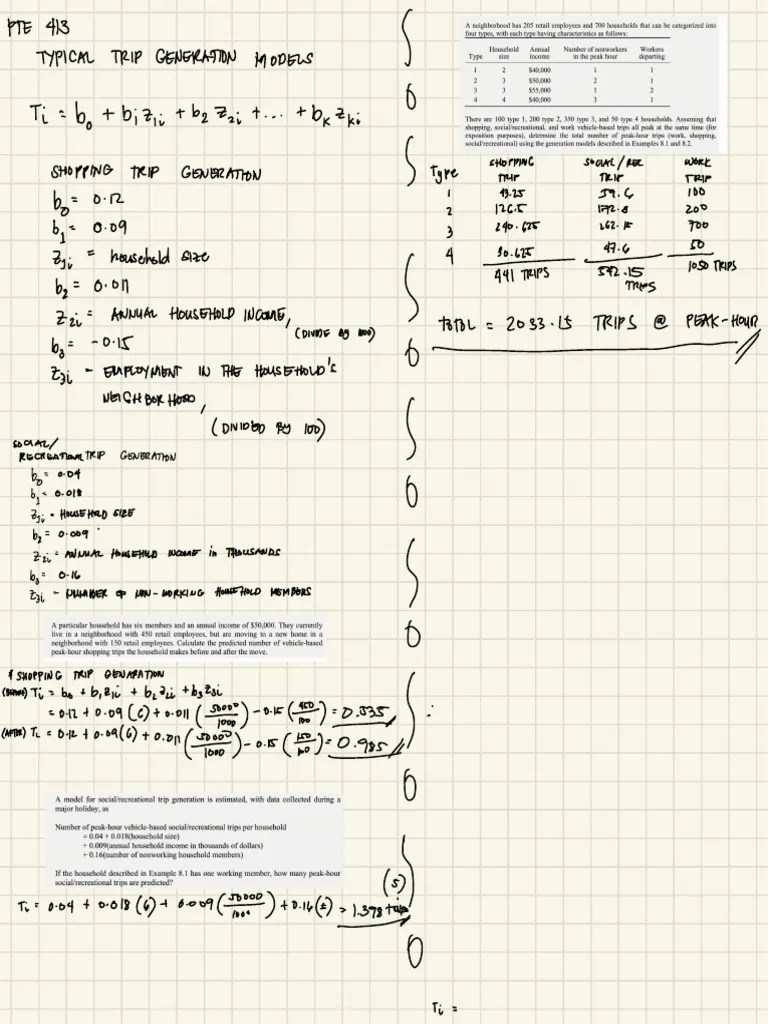 PTE 413
TYPICAL TRIP GENERATION MODELS
Ti = b0 + b1 z1i + b2 z2i + ... + bk zki
SHOPPING TRIP GENERATION
b0 = 0.12
b1 = 0.09
z1i = household size
b2 = 0.011
z2i = ANNUAL HOUSEHOLD INCOME,
(DIVIDE BY 1000)
b3 = -0.15
z3i - EMPLOYMENT IN THE HOUSEHOLD'S
NEIGHBORHOOD,
(DIVIDED BY 100)
SOCIAL/
RECREATIONAL TRIP GENERATION
b0 = 0.04
b1 = 0.018
z1i = HOUSEHOLD SIZE
b2 = 0.009
z2i = ANNUAL HOUSEHOLD INCOME in THOUSANDS
b3 = 0.16
z3i - NUMBER OF NON-WORKING HOUSEHOLD MEMBERS
A particular household has six members and an annual income of $50,000. They currently
live in a neighborhood with 450 retail employees, but are moving to a new home in a
neighborhood with 150 retail employees. Calculate the predicted number of vehicle-based
peak-hour shopping trips the household makes before and after the move.
SHOPPING TRIP GENARATION
(BEFORE) Ti = b0 + b1 z1i + b2 z2i + b3 z3i
= 0.12 + 0.09 (6) + 0.011 (50000/1000) - 0.15 (450/100) = 0.535
(AFTER) Ti = 0.12 + 0.09 (6) + 0.011 (50000/1000) - 0.15 (150/100) = 0.985
A model for social/recreational trip generation is estimated, with data collected during a
major holiday, as
Number of peak-hour vehicle-based social/recreational trips per household
= 0.04 + 0.018(household size)
+ 0.009(annual household income in thousands of dollars)
+ 0.16(number of nonworking household members)
If the household described in Example 8.1 has one working member, how many peak-hour
social/recreational trips are predicted?
(5)
Ti = 0.04 + 0.018 (6) + 0.009 (50000/1000) + 0.16 (5) = 1.398 trip
A neighborhood has 205 retail employees and 700 households that can be categorized into
four types, with each type having characteristics as follows:
Household Annual Number of nonworkers Workers
Type size income in the peak hour departing
1 2 $40,000 1 1
2 3 $50,000 2 1
3 3 $55,000 1 2
4 4 $40,000 3 1
There are 100 type 1, 200 type 2, 350 type 3, and 50 type 4 households. Assuming that
shopping, social/recreational, and work vehicle-based trips all peak at the same time (for
exposition purposes), determine the total number of peak-hour trips (work, shopping,
social/recreational) using the generation models described in Examples 8.1 and 8.2.
SHOPPING SOCIAL/REC WORK
Type TRIP TRIP TRIP
1 43.25 59.6 100
2 126.5 172.8 200
3 240.625 262.15 700
4 30.625 47.6 50
441 TRIPS 542.15 TRIPS 1050 TRIPS
TOTAL = 2033.15 TRIPS @ PEAK-HOUR
Ti =